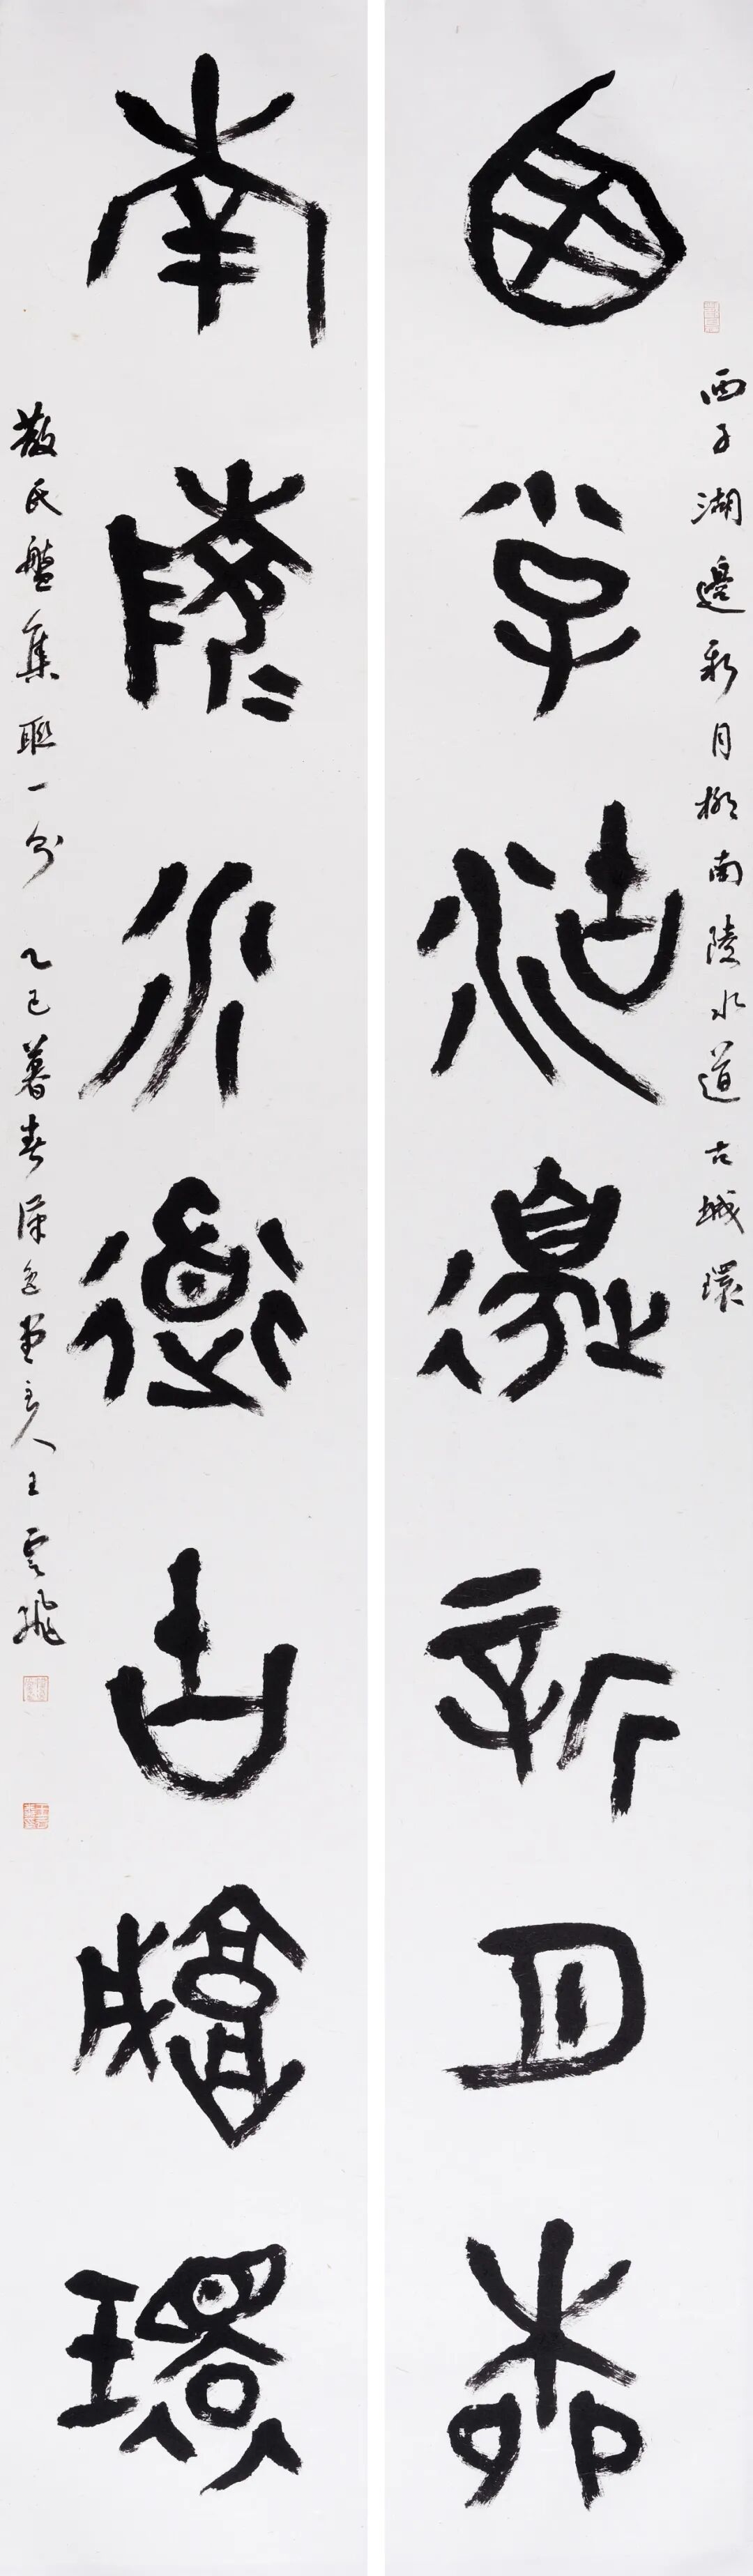 西子湖邊新月柳南陵水道古城環
西子湖邊新月柳
南陵水道古城環
散氏盤集聯一 乙巳暮春 堂主人王雲飛